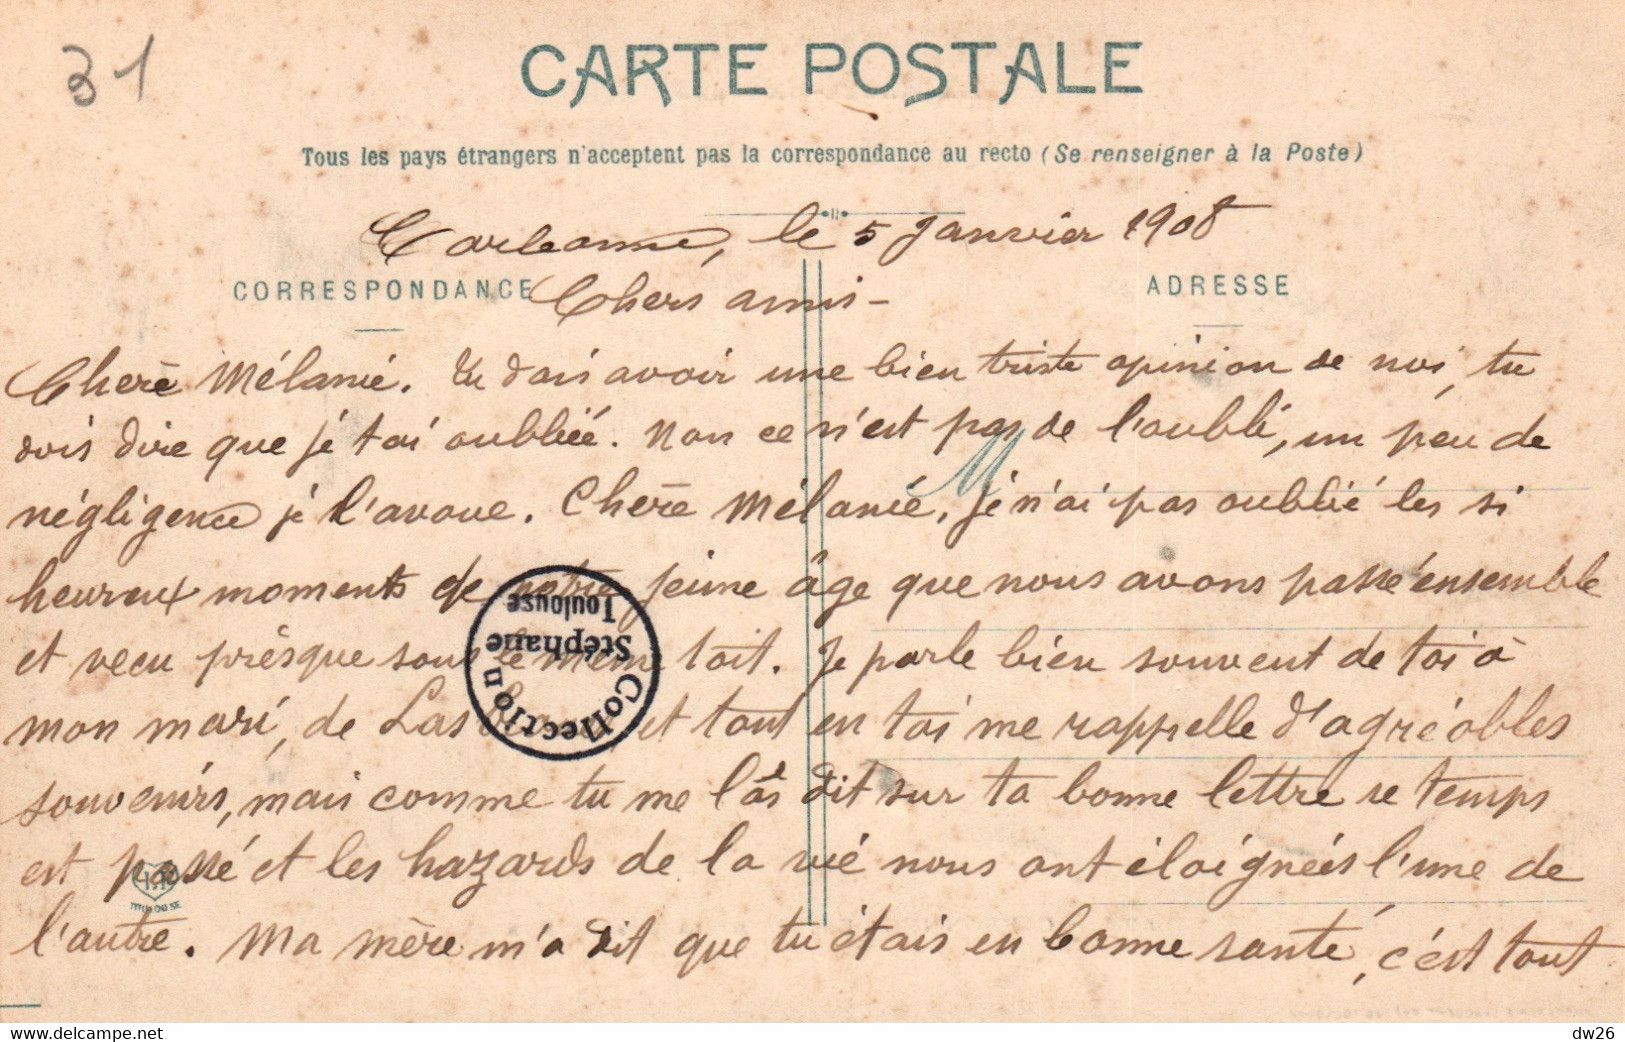 31
CARTE POSTALE
Tous les pays étrangers n'acceptent pas la correspondance au recto (Se renseigner à la Poste)
le 5 Janvier 1908
CORRESPONDANCE
ADRESSE
Chers amis -
Cherè Mélanié. Tu dois avoir une bien triste opinion de moi, tu
dois dire que jé t'ai oubliéé. Non ce n'est pas de l'oubli, un peu de
négligence jé l'avoue. Cherè Mélanié, jé n'ai pas oublié les si
heureux moments de notre jeune âge que nous avons passé ensemble
et vecu présque sous le même toit. Je parle bien souvent de toi à
mon mari, de et tout en toi me rappelle d'agréables
souvenirs, mais comme tu me l'as dit sur ta bonne lettre ce temps
est passé et les hazards de la vié nous ont éloignéés l'une de
l'autre. Ma mère m'a dit que tu étais en bonne santé, c'est tout
Collection
Stéphane
Toulouse
TOULOUSE
www.delcampe.net
dw26